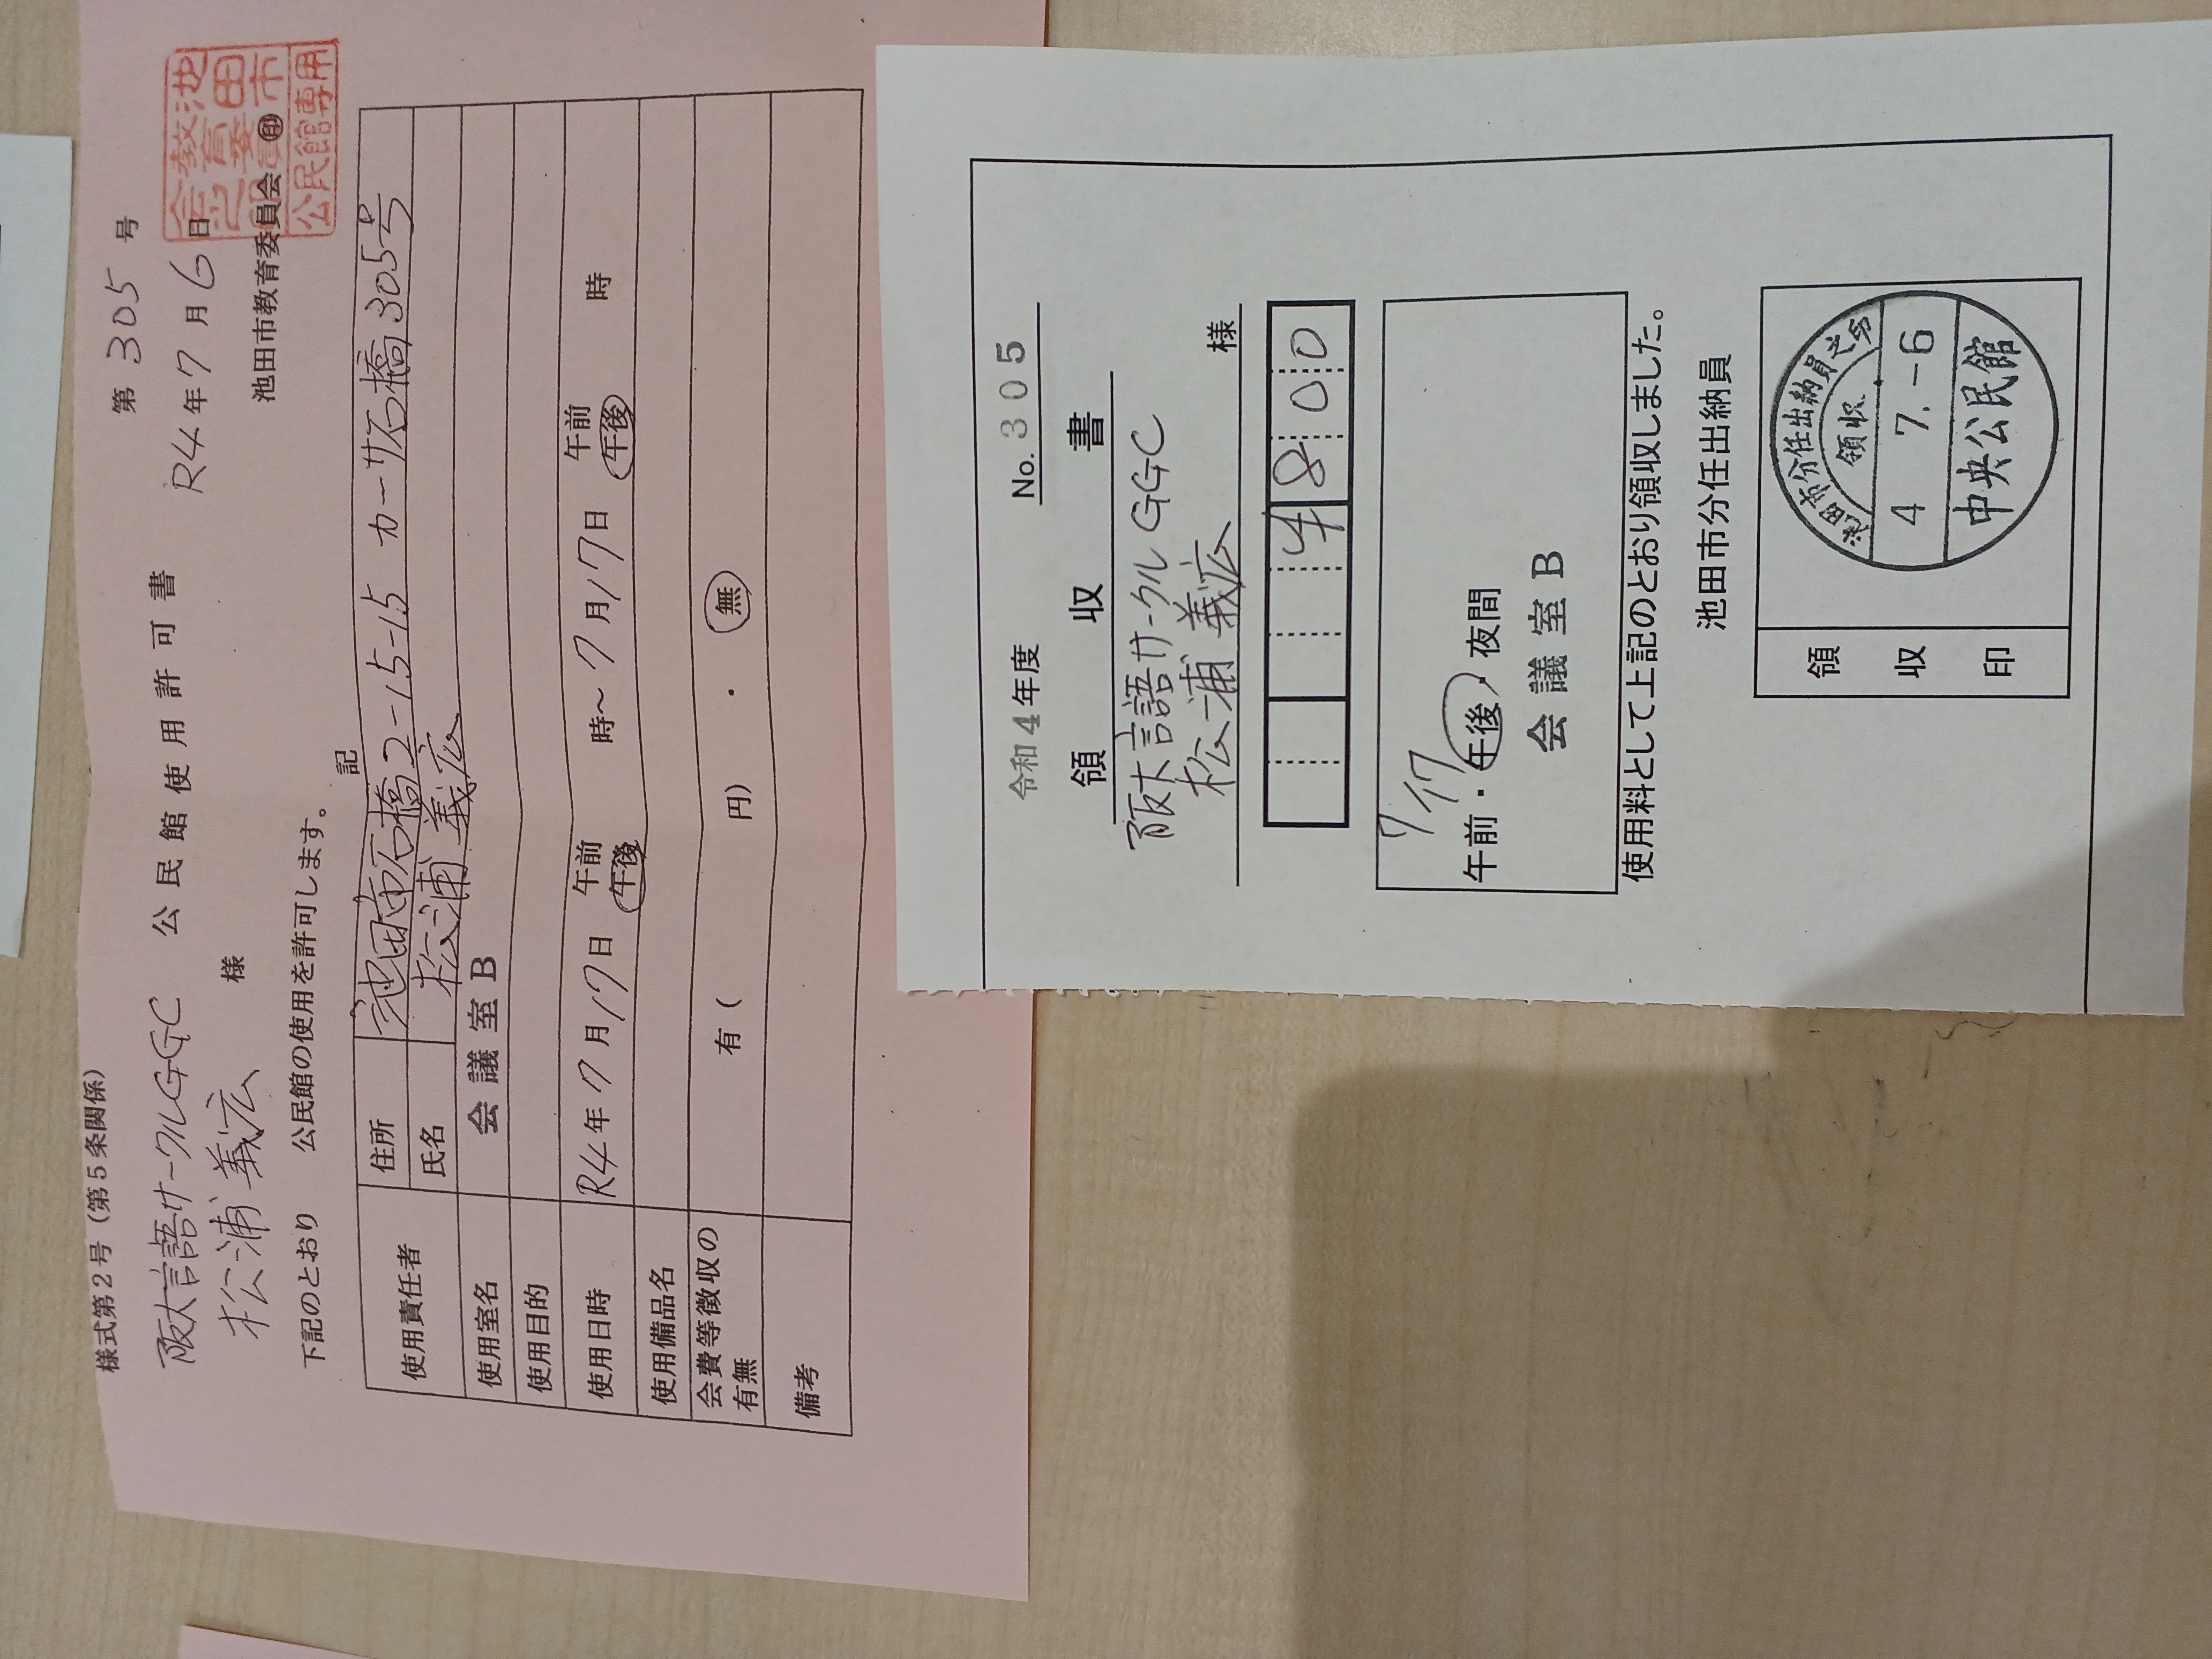 様式第2号（第5条関係）
第 305 号
阪大言語サークルGGC 公民館使用許可書
R4年7月6日
松浦義広 様
池田市教育委員会 ㊞
池田市教育委員会之印
公民館専用
下記のとおり 公民館の使用を許可します。
記
使用責任者 住所 池田市石橋2-15-15 カーサ石橋305号
氏名 松浦義広
使用室名 会議室B
使用目的
使用日時 R4年7月17日 午前 午後 時～7月17日 午前 午後 時
使用備品名
会費等徴収の有無 有（ 円）・ 無
備考
令和4年度 No. 305
領収書
阪大言語サークルGGC
松浦義広 様
¥800
7/17
午前・午後・夜間
会議室B
使用料として上記のとおり領収しました。
池田市分任出納員
領収印
池田市分任出納員之印
領収
4 7.-6
中央公民館